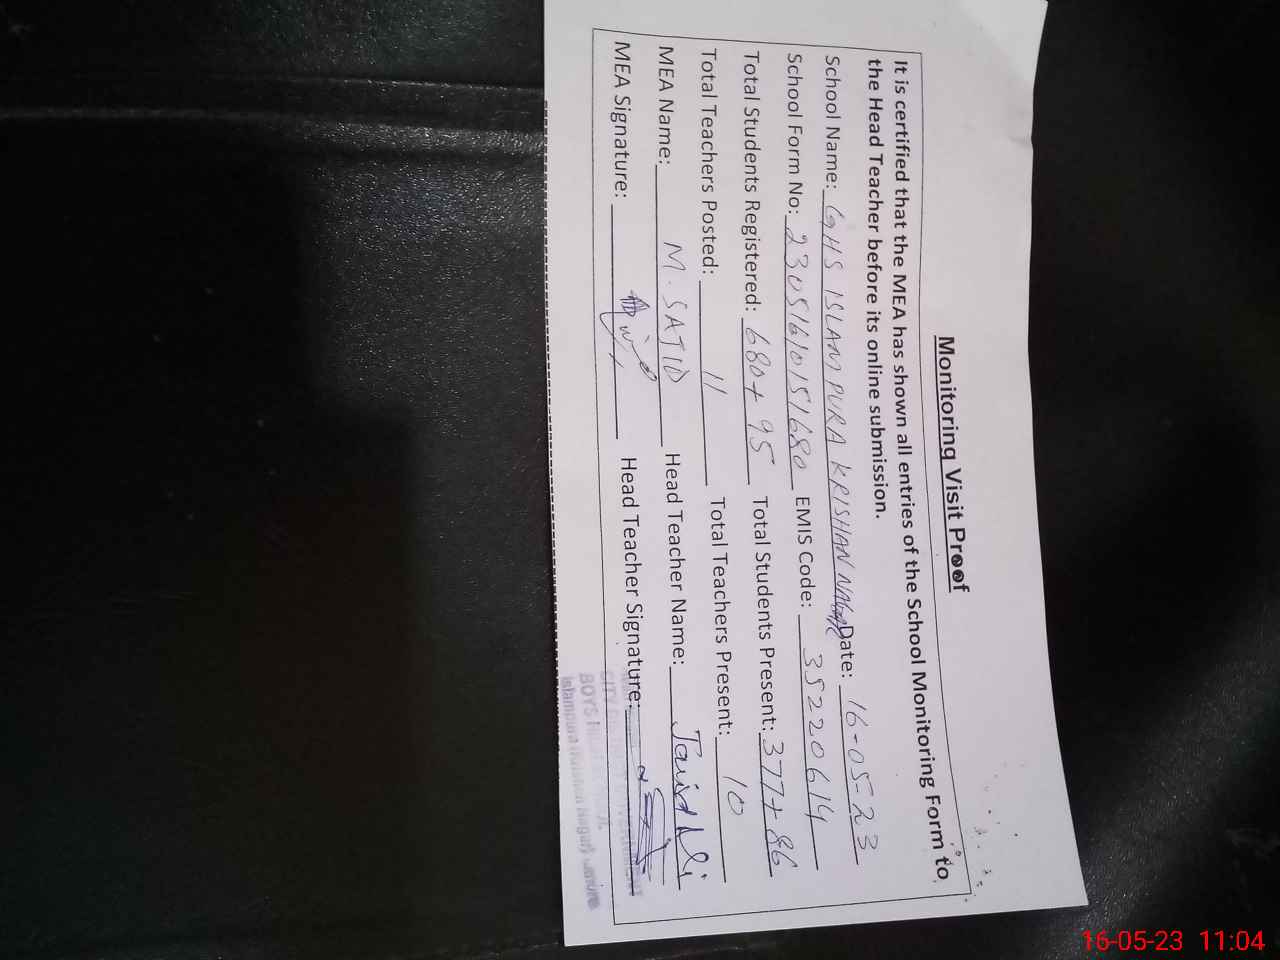 Monitoring Visit Proof
It is certified that the MEA has shown all entries of the School Monitoring Form to
the Head Teacher before its online submission.
School Name: GHS ISLAMPURA KRISHAN NAGAR Date: 16-05-23
School Form No: 23051610151680 EMIS Code: 35220614
Total Students Registered: 680+95 Total Students Present: 377+86
Total Teachers Posted: 11 Total Teachers Present: 10
MEA Name: M. SAJID Head Teacher Name:
MEA Signature: Head Teacher Signature:
CITY
BOYS
Islampura (Krishan Nagar) Lahore
16-05-23 11:04